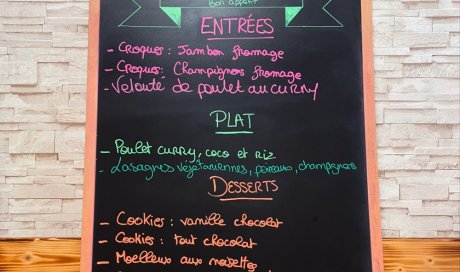 Bon appétit
ENTRÉES
- Croques : Jambon fromage
- Croques : Champignons fromage
- Velouté de poulet au curry
PLAT
- Poulet curry, coco et riz
- Lasagnes végétariennes, poireaux, champignons
DESSERTS
- Cookies : vanille chocolat
- Cookies : tout chocolat
- Moelleux aux noisettes